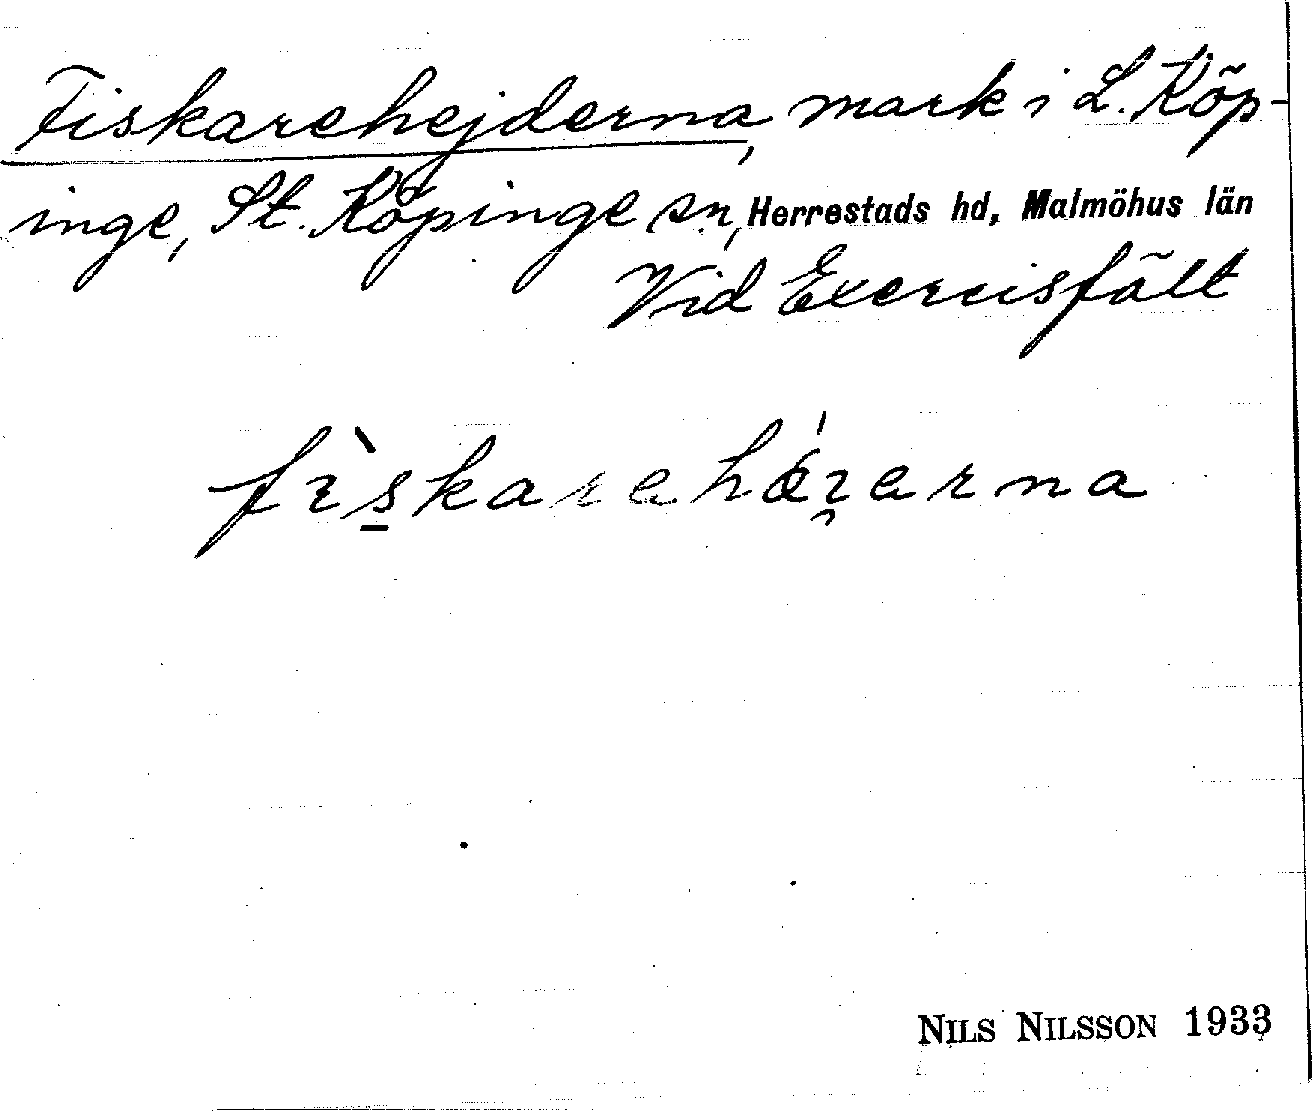 Fiskarehejderna, mark i L. Köp-
inge, St. Köpinge sn, Herrestads hd, Malmöhus län
Vid Exercisfält
NILS NILSSON 1933